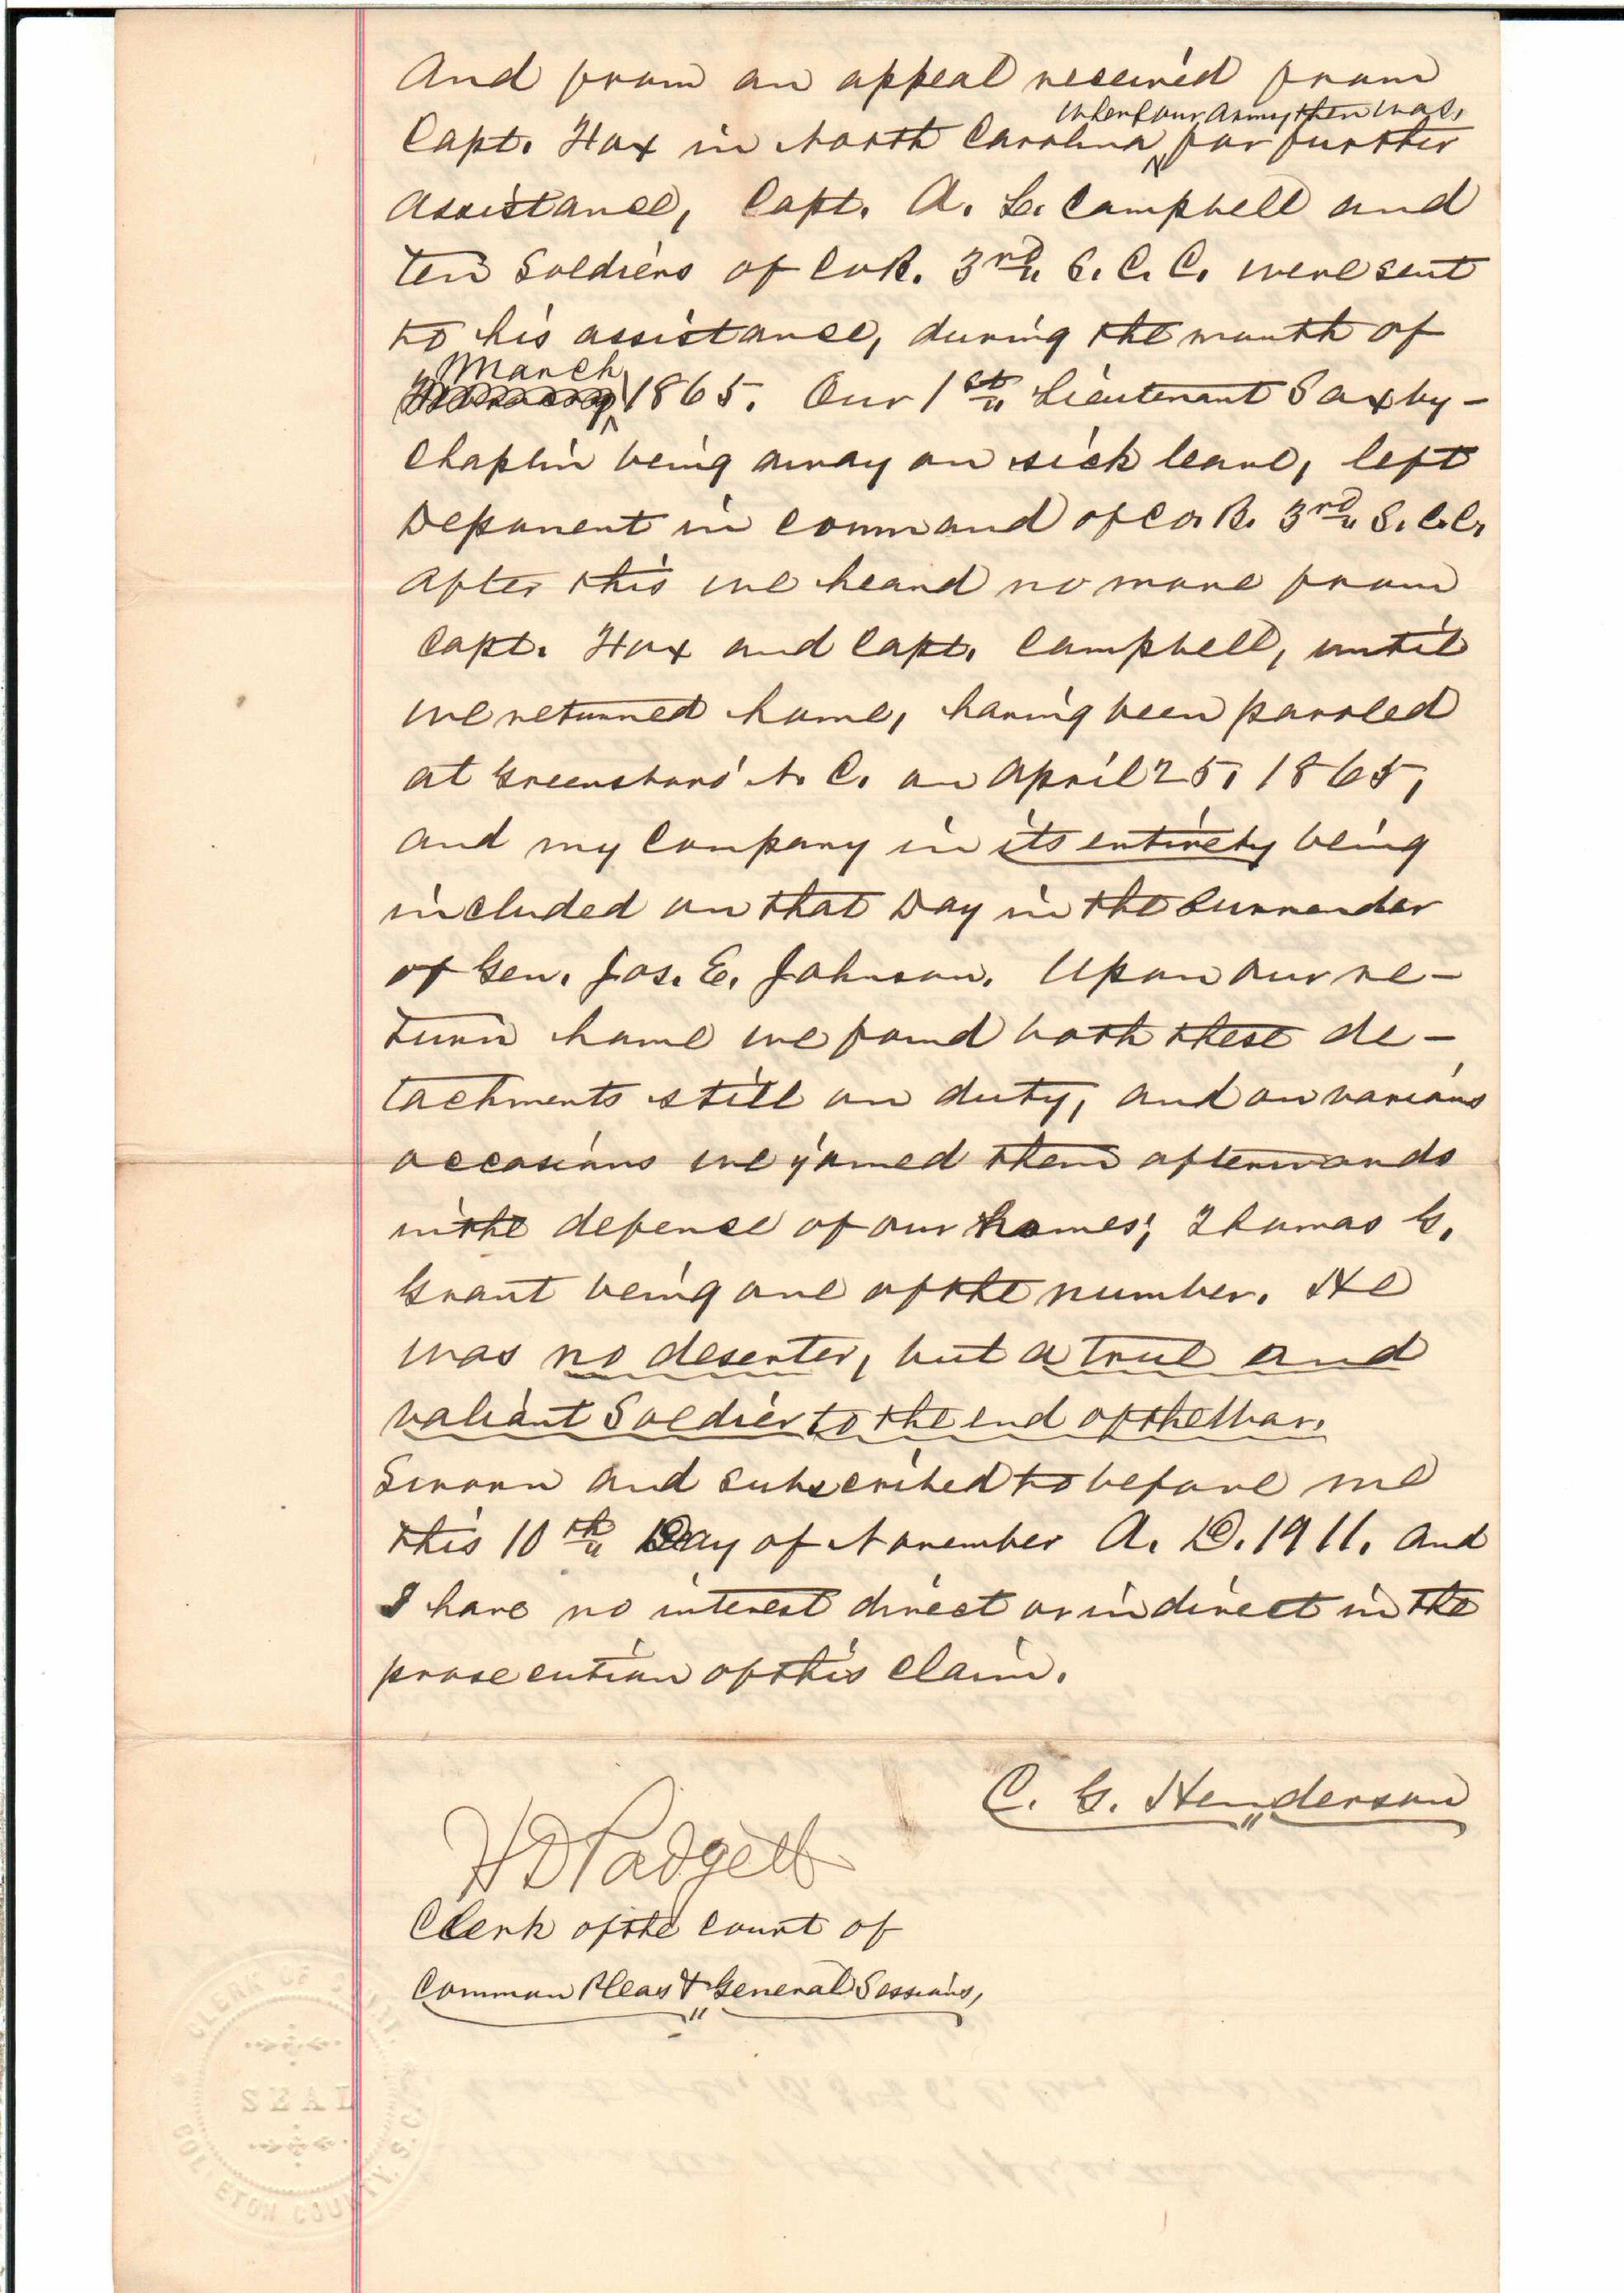 And from an appeal received from
where our army then was,
Capt. Fox in North Carolina for further
assistance, Capt. A. C. Campbell and
ten Soldiers of Co B. 3rd S. C. C. were sent
to his assistance, during the month of
March
1865. Our 1st Lieutenant Saxby-
Chaplin being away on sick leave, left
Deponent in command of Co. B. 3rd S. C. C.
after this we heard no more from
Capt. Fox and Capt. Campbell, until
we returned home, having been paroled
at Greensboro' N. C. on April 25, 1865,
and my Company in its entirety being
included on that Day in the Surrender
of Gen. Jos. E. Johnson. Upon our re-
turn home we found both these de-
tachments still on duty, and on various
occasions we joined them afterwards
in the defense of our homes; Thomas G.
Grant being one of the number. He
was no deserter, but a true and
valiant Soldier to the end of the War.
Sworn and subscribed to before me
this 10th Day of November A. D. 1911. and
I have no interest direct or indirect in the
prosecution of this claim.
C. G. Henderson
H D Padgett
Clerk of the Court of
Common Pleas & General Sessions,
CLERK OF COURT.
SEAL
COLLETON COUNTY, S. C.